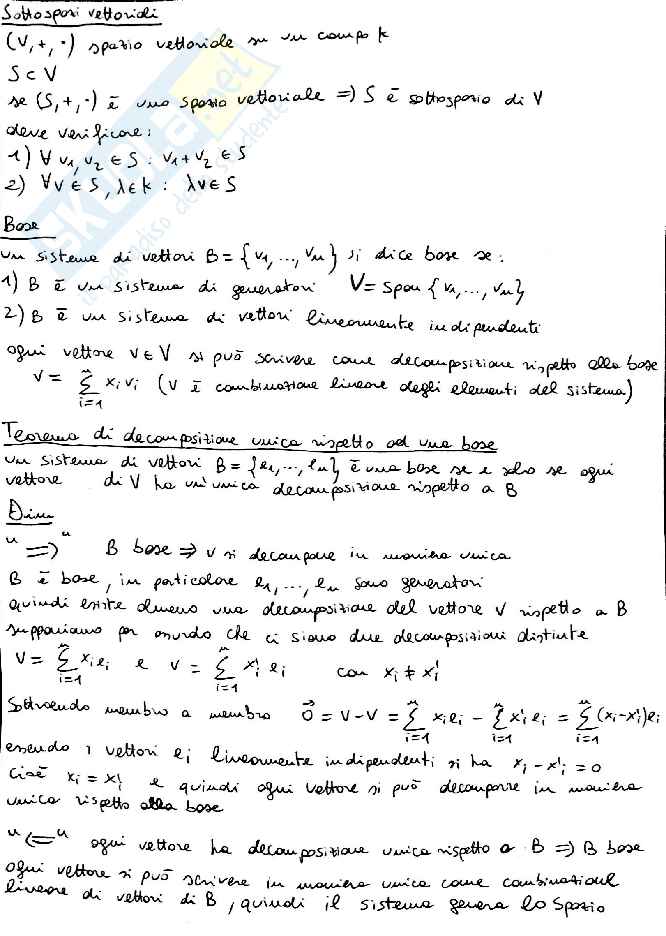 Sottospazi vettoriali
(V,+,·) spazio vettoriale su un campo k
S ⊂ V
se (S,+,·) è uno spazio vettoriale ⇒ S è sottospazio di V
deve verificare:
1) ∀ v₁,v₂ ∈ S : v₁+v₂ ∈ S
2) ∀v ∈ S, λ∈k : λv∈S
Base
un sistema di vettori B = {v₁,...,vₙ} si dice base se:
1) B è un sistema di generatori V = Span {v₁,...,vₙ}
2) B è un sistema di vettori linearmente indipendenti
ogni vettore v∈V si può scrivere come decomposizione rispetto alla base
v = Σᵢ₌₁ⁿ xᵢvᵢ (v è combinazione lineare degli elementi del sistema)
Teorema di decomposizione unica rispetto ad una base
un sistema di vettori B = {e₁,...,eₙ} è una base se e solo se ogni
vettore di V ha un'unica decomposizione rispetto a B
Dim
"⇒" B base ⇒ v si decompone in maniera unica
B è base, in particolare e₁,...,eₙ sono generatori
quindi esiste almeno una decomposizione del vettore v rispetto a B
supponiamo per assurdo che ci siano due decomposizioni distinte
v = Σᵢ₌₁ⁿ xᵢeᵢ e v = Σᵢ₌₁ⁿ x'ᵢeᵢ con xᵢ ≠ x'ᵢ
Sottraendo membro a membro 0⃗ = v-v = Σᵢ₌₁ⁿ xᵢeᵢ - Σᵢ₌₁ⁿ x'ᵢeᵢ = Σᵢ₌₁ⁿ (xᵢ-x'ᵢ)eᵢ
essendo i vettori eᵢ linearmente indipendenti si ha xᵢ-x'ᵢ=0
cioè xᵢ = x'ᵢ e quindi ogni vettore si può decomporre in maniera
unica rispetto alla base
"⇐" ogni vettore ha decomposizione unica rispetto a B ⇒ B base
ogni vettore si può scrivere in maniera unica come combinazioni
lineare di vettori di B, quindi il sistema genera lo spazio
SKUOLA.net
il paradiso dello studente